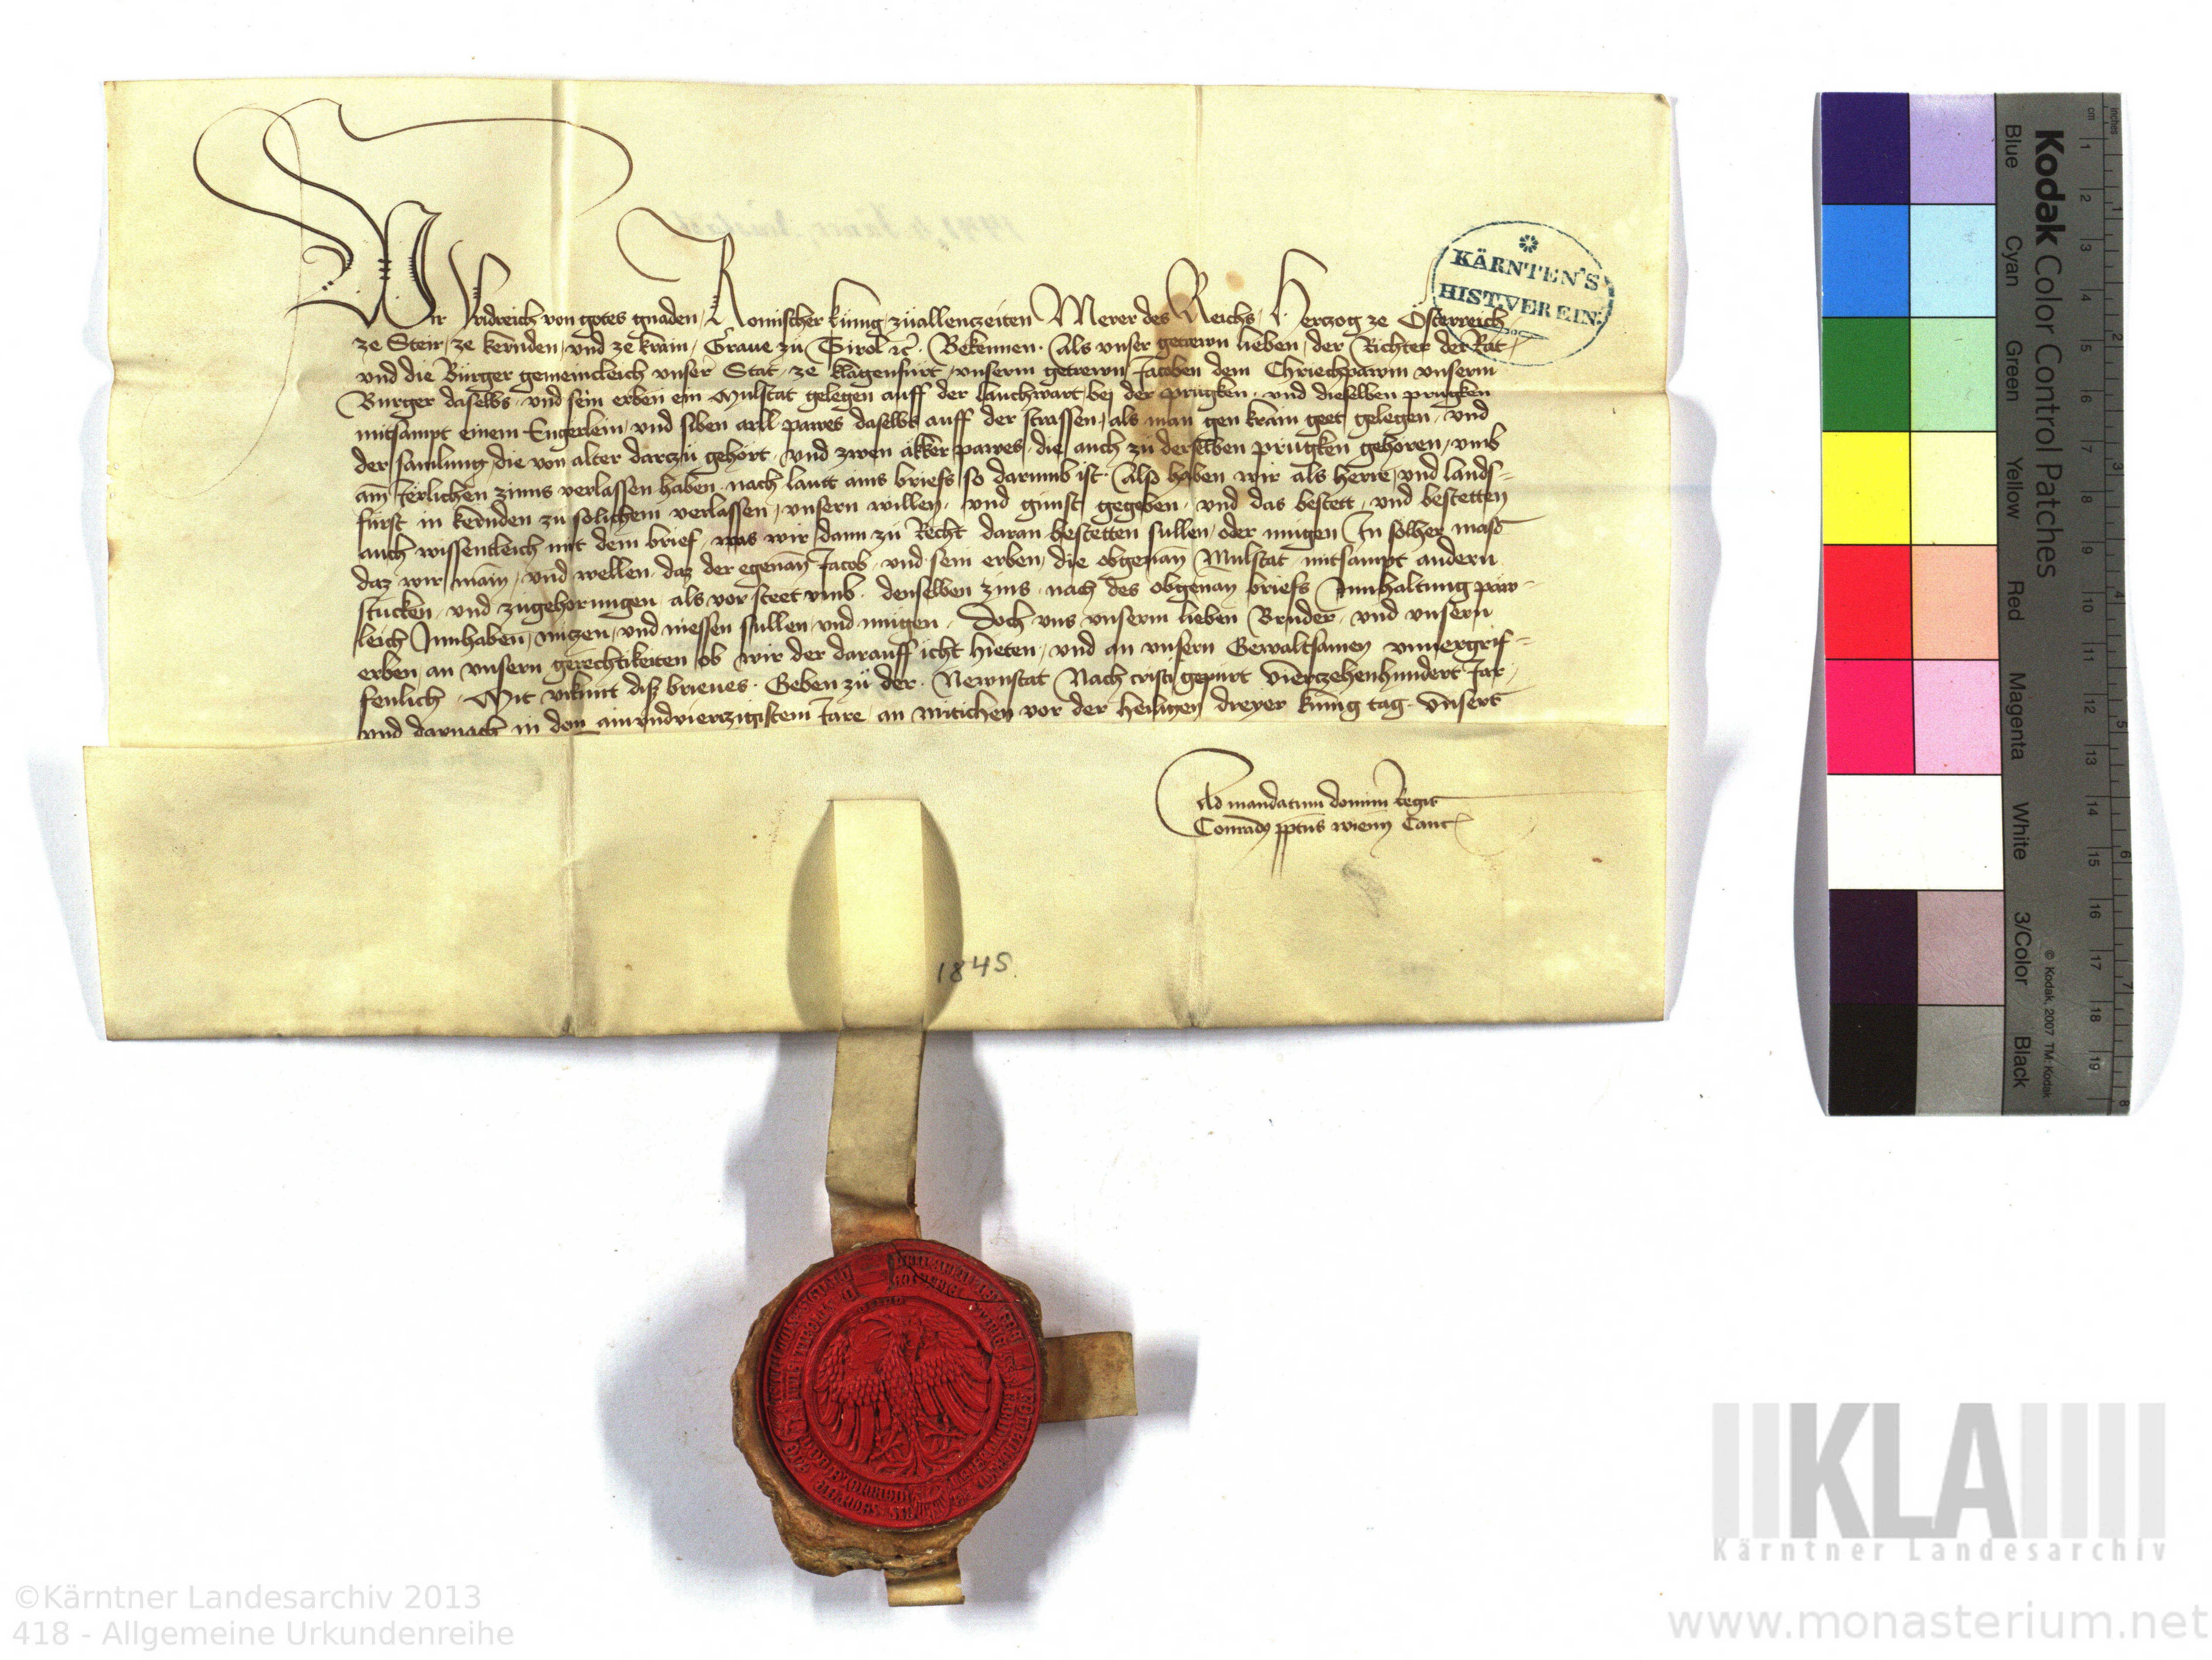 Wir Fridreich von gotes gnaden, Romischer kunig, zuallenczeiten Merer des Reichs, Herczog ze Österreich,
ze Steir, ze kernden, vnd ze krain, Graue zu Tirol ꝛc. Bekennen. Als vnser getrewn lieben, der Richter der Rat,
vnd die Burger gemeincleich vnser Stat, ze klagenfurt, vnserm getrewn Jacoben dem Chriechpawm vnserm
Burger daselbs, vnd sein erben ein Mulstat gelegen auff der lanchwart bej der prugken, vnd dieselben prugken
mitsampt einem Engerlein, vnd siben arll pawes daselbs auff der strassen, als man gen krain geet gelegen, vnd
der samlung, die von alter darczu gehort, vnd zwen akker pawes, die auch zu derselben prugken gehoren, vmb
ain Jerlichen zinns verlassen haben, nach lautt ains briefs so darumb ist. Also haben wir als herre, vnd lands-
fürst in kernden zu solichem verlassen, vnsern willen, vnd gunst gegeben, vnd das bestett, vnd bestetten
auch wissentleich mit dem brief, was wir dann zu Recht daran bestetten sullen, oder mugen In solher mass
daz wir main, vnd wellen, daz der egenan Jacob, vnd sein erben, die obgenan Mulstat, mitsampt andern
stucken, vnd zugehorungen, als vor steet vmb denselben zins, nach des obgenan briefs Innhaltung paw-
leich Innhaben, nuczen, vnd niessen sullen, vnd mugen. Doch vns vnserm lieben Bruder, vnd vnsern
erben, an vnsern gerechtikeiten, ob wir der darauff icht hieten, vnd an vnsern Gewaltsamen vnuergrif-
fenlich. Mit vrkunt diss brieues. Geben zu der Newnstat Nach cristi gepurt vierczehenhundert Jar,
vnd darnach in dem ainvndvierczigistem Jare, an mitichen vor der heiligen dreyer kunig tag. Vnsers
Ad mandatum domini Regis
Conradus ppositus wienn Canc
KÄRNTEN'S
HIST. VEREIN.
1845.
Kodak Color Control Patches
Blue Cyan Green Yellow Red Magenta White 3/Color Black
© Kodak, 2007 TM: Kodak
inches 1 2 3 4 5 6 7 8
cm 1 2 3 4 5 6 7 8 9 10 11 12 13 14 15 16 17 18 19
KLA
Kärntner Landesarchiv
©Kärntner Landesarchiv 2013
418 - Allgemeine Urkundenreihe
www.monasterium.net